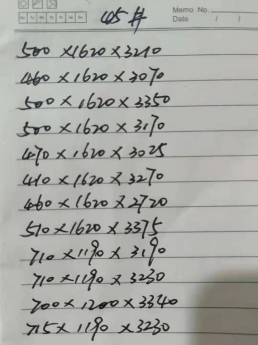 Memo No.
Date / /
45#
500×1620×3210
460×1620×3070
500×1620×3350
500×1620×3170
470×1620×3025
410×1620×3270
460×1620×2720
510×1620×3375
710×1190×3190
710×1190×3230
700×1200×3340
715×1190×3230